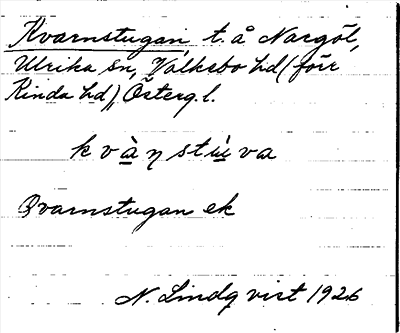 Kvarnstugan, t. å Nargöl,
Ulrika sn, Valkebo hd (förr
Kinda hd), Österg. l.
k v à ŋ s t ù v a
Qvarnstugan ek
N. Lindqvist 1926